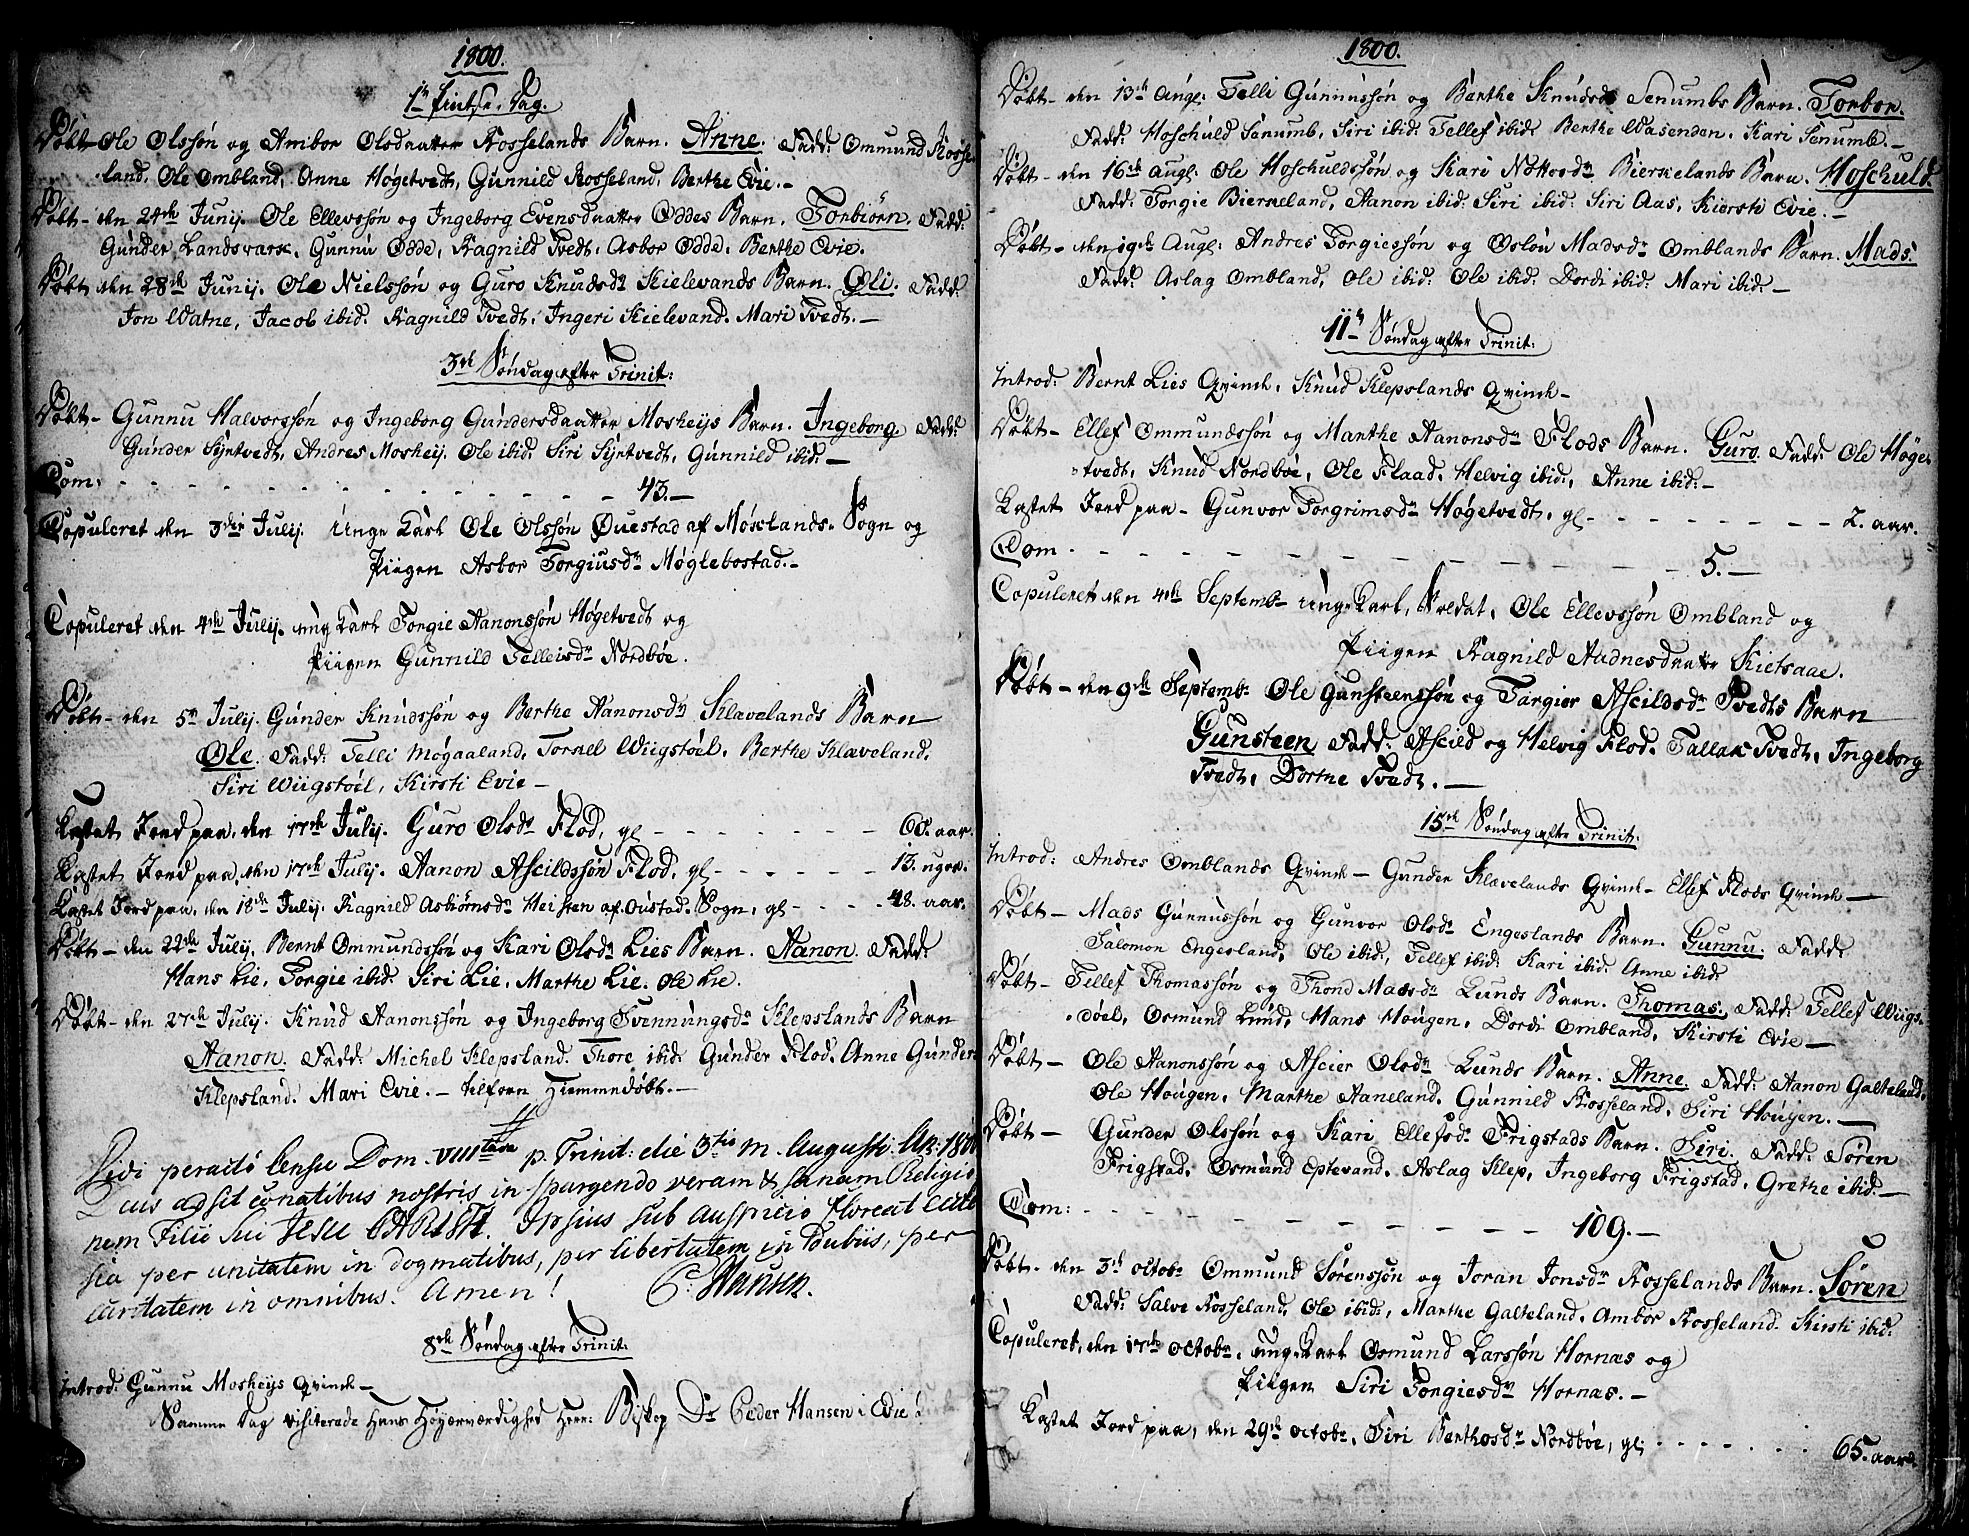 1800.
1ste Pintse-Dag.
Døbt Ole Olssøn og Ambor Olsdaatter Rosselands Barn. Anne. Fadd: Ommund Rosse-
land, Ole Ombland, Anne Høgetvedt, Gunnild Rosseland, Berthe Evie.-
Døbt - den 24th Junij. Ole Ellevssøn og Ingeborg Evensdaatter Oddes Barn. Torbiørn. Fadd:
Gunder Landsvark, Gunnu Odde, Ragnild Tvedt, Asbor Odde, Berthe Evie.
Døbt den 28th Junij. Ole Nielssøn og Guro Knudsdr Kielevands Barn. Oli. Fadd:
Jon Watne, Jacob ibid: Ragnild Tvedt, Ingeri Kielevand. Mari Tvedt.-
3th Søndag after Trinit:
Døbt - Gunnu Halvorssøn og Ingeborg Gundersdaatter Mosheijs Barn. Ingeborg Fadd:
Gunder Syrtvedt, Andres Moshey, Ole ibid: Siri Syrtvedt, Gunnild ibid:-
Com: - - - 43.-
Copuleret den 3die Julij. Unge Karl Ole Olssøn Ouestad af Moslands Sogn og
Piigen Asbor Torgiusdr Møglebostad.-
Copuleret den 4th Julij. ung Karl Torgie Aanonssøn Høgetvedt og
Piigen Gunnild Telleisdr Nordbøe.
Døbt - den 5th Julij. Gunder Knudssøn og Berthe Aanonsdr Klavelands Barn
Ole. Fadd: Telli Mogaaland, Tornel Wiigstøel, Berthe Klaveland,
Siri Wiigstøel, Kirsti Evie -
Kastet Jord paa, den 17th Julij. Guro Olsdr Flod, gl - - - 60. aar.
Kastet Jord paa, den 17th Julij. Aanon Ascildssøn Flod, gl - - - 13. uger.
Kastet Jord paa, den 18th Julij. Ragnild Asbiørnsdr Heisten af Oustad Sogn, gl - - - 48. aar.
Døbt - den 22th Julij. Bernt Ommundssøn og Kari Olsdr Lies Barn. Aanon. Fadd:
Hans Lie, Torgie ibid: Siri Lie, Marthe Lie. Ole Lie.
Døbt - den 27th Julij. Knud Aanonssøn og Ingeborg Svennungsdr Klepslands Barn
Aanon. Fadd: Michel Klepsland. Thore ibid: Gunder Flod, Anne Gunder
Klepsland. Mari Evie. - tilforn Hiemmedøbt.-
Vidi peracto censu Dom. VIIItava p. Trinit: die 3tio m. Augusti. An: 180
Deus adsit conatibus nostris in spargendo veram & sanam Religio
nem Filii sui JESU CHRISTI. Ipsius sub auspicio floreat Eccle
sia per unitatem in dogmatibus, per libertatem in dubiis, per
caritatem in omnibus. Amen! P. Hansen.
8th Søndag after Trinit:
Introd: Gunnu Mosheijs Qvinde -
Samme Dag visiterede Hans Høyærværdighed Herr: Biskop Dr Peder Hansen i Evie.
1800.
Døbt - den 13th Aug: Telli Gunnussøn og Berthe Knudsdr Senumbs Barn. Torbor.
Fadd: Hoschuld Senumb, Siri ibid: Tellef ibid: Berthe Wasenden, Kari Senumb.-
Døbt - den 16th Aug: Ole Hoschuldssøn og Kari Nottosdr Bierkelands Barn. Hoschuld.
Fadd: Torgie Bierkeland, Aanon ibid: Siri ibid: Siri Aas, Kiersti Evie.-
Døbt - den 19th Aug: Andres Torgiessøn og Osloü Madsdr Omblands Barn. Mads.
Fadd: Aslag Ombland, Ole ibid: Ole ibid: Dordi ibid: Mari ibid:-
11th Søndag after Trinit:
Introd: Bernt Lies Qvinde, Knud Klepslands Qvinde-
Døbt - Ellef Ommundssøn og Marthe Aanonsdr Flods Barn. Guro. Fadd: Ole Høge-
tvedt, Knud Nordbøe, Ole Flaad, Helvig ibid:, Anne ibid:-
Kastet Jord paa - Gunvor Torgrimsdr Høgetvedt, gl - - - 2. aar.
Com. - - - 5.-
Copuleret den 4th Septemb- unge Karl, Soldat, Ole Ellevssøn Ombland og
Piigen Ragnild Audnesdaatter Kietsaae.
Døbt - den 9th Septemb: Ole Gunsteenssøn og Targier Ascildsdr Tvedts Barn
Gunsteen Fadd: Ascild og Helvig Flod, Tallak Tvedt, Ingeborg
Tvedt, Dorthe Tvedt.-
15th Søndag after Trinit:
Introd: Andres Omblands Qvinde - Gunder Klævelands Qvinde - Ellef Flods Qvinde -
Døbt - Mads Gunnussøn og Gunvor Olsdr Engeslands Barn. Gunnu. Fadd:
Salomon Engesland, Ole ibid:, Tellef ibid: Kari ibid: Anne ibid:
Døbt - Tellef Thomassøn og Thond Madsdr Lunds Barn. Thomas. Fadd: Tellef Wiigs-
døel, Osmund Lund, Hans Hougen, Dordi Ombland, Kirsti Evie -
Døbt - Ole Aanonssøn og Ascier Olsdr Lunds Barn. Anne. Fadd: Aanon Galteland,
Ole Hougen, Marthe Aaneland, Gunnild Rosseland, Siri Hougen.-
Døbt - Gunder Olssøn og Kari Ellefsdr Frigstads Barn. Siri. Fadd: Søren
Frigstad, Osmund Optevand, Aslag Klep, Ingeborg Frigstad, Grethe ibid:-
Com: - - - 109.-
Døbt - den 3d Octobr Ommund Sørenssøn og Joran Jonsdr Rosselands Barn. Søren
Fadd: Salve Rosseland, Ole ibid:, Marthe Galteland, Ambor Rosseland. Kirsti ibid:
Copuleret, den 17th Octobr. unge Karl Osmund Larssøn Hornæs og
Piigen Siri Torgiesdr Hornæs.-
Kastet Jord paa, den 29th Octobr, Siri Berthosdr Nordbøe, gl; - - - 65. aar.